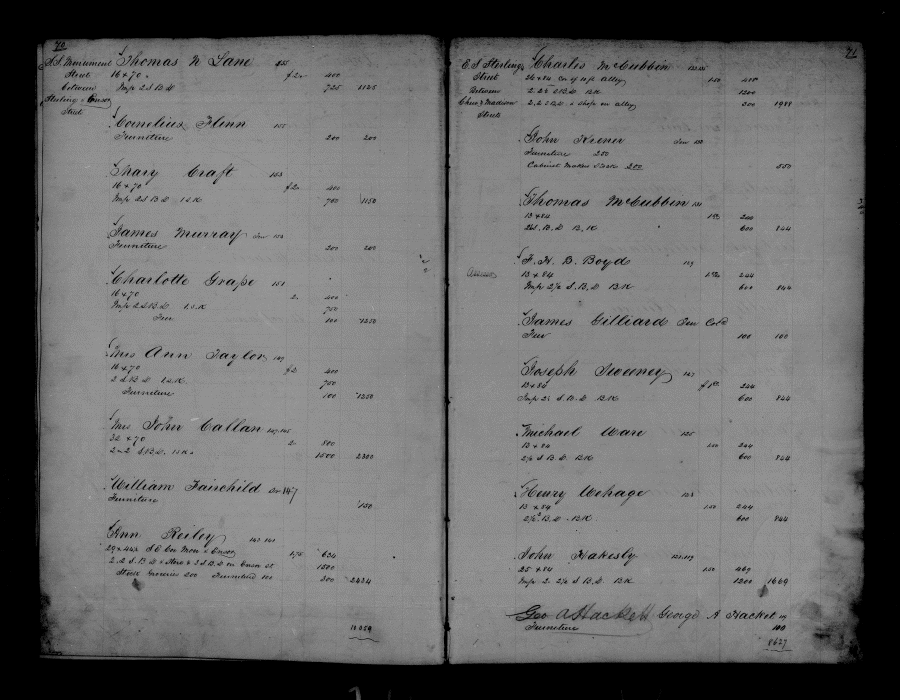 70
S.S. Monument Street between Sterling & Ensor Street
Thomas N Lane 155
16 x 70 f 2 400
Imp 2 S B D 725 1125
Cornelius Flenn 155
Furniture 200 200
Mary Craft 153
16 x 70 f 2 400
Imp 2 S B D 700 1150
James Murray 153
Furniture 200 200
Charlotte Grape 151
16 x 70 2 400
Imp 2 S B D 750
Fur 100 1250
Mrs Ann Taylor 149
16 x 70 f 2 400
2 S B D 750
Furniture 100 1250
Mrs John Callan 147.145
32 x 70 2 800
2 - 2 S B D 1500 2300
William Fairchild 147
Furniture 150
Ann Reiley 143 141
29 x 44 S E Cor Mon & Ensor 1.75 634
2. 2 S. B D & Store & 2 S. B D on Ensor St 1500
Stock Groceries 200 Furniture 100 300 2434
11059
71
E S Sterling Street Between Chew & Madison Street
Charles McCubbin
26 x 84 Cor of 10 ft alley 1.50
2. 2½ S B D BK 1200
2. 2 S B D & Shop on alley 300 1988
John Kiener
Furniture 250
Cabinet Maker Stock 300 550
Thomas McCubbin 131
13 x 84 244
2½ S. B. D B. K 600 844
F. H. B. Boyd 129
13 x 84 244
Imp 2½ S. B. D BK 600 844
James Gilliard
Fur 100 100
Joseph Sweeney 127
13 x 84 244
Imp 2½ S. B D BK 600 844
Michael Ware 125
13 x 84 1.50 244
2½ S B D. BK 600 844
Henry Wehage 123
13 x 84 1.50 244
2½ S B. D. BK 600 844
John Hakesby 121.119
25 x 84 1.50 469
Imp 2. 2½ S B. D. BK 1200 1669
Geo A Hackett George A Hackel
Furniture 100
8627